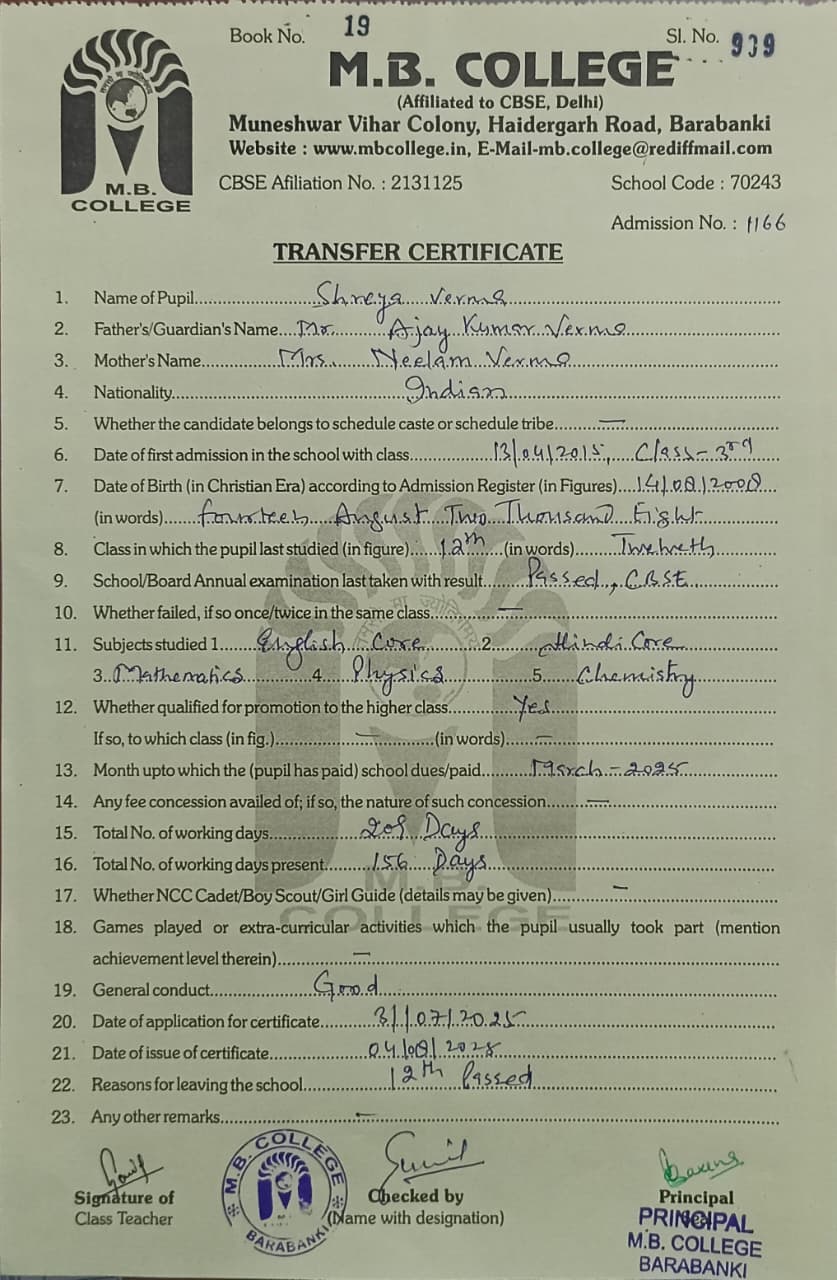 Book No. 19 Sl. No. 939
M.B. COLLEGE
(Affiliated to CBSE, Delhi)
Muneshwar Vihar Colony, Haidergarh Road, Barabanki
Website : www.mbcollege.in, E-Mail-mb.college@rediffmail.com
M.B. COLLEGE
CBSE Afiliation No. : 2131125 School Code : 70243
Admission No. : 1166
TRANSFER CERTIFICATE
1. Name of Pupil Shreya Verma
2. Father's/Guardian's Name Mr. Ajay Kumar Verma
3. Mother's Name Mrs. Neelam Verma
4. Nationality Indian
5. Whether the candidate belongs to schedule caste or schedule tribe —
6. Date of first admission in the school with class 13/04/2015, Class-3rd
7. Date of Birth (in Christian Era) according to Admission Register (in Figures) 14/08/2008
(in words) fourteen August Two Thousand Eight
8. Class in which the pupil last studied (in figure) 12th (in words) Twelveth
9. School/Board Annual examination last taken with result Passed, CBSE
10. Whether failed, if so once/twice in the same class —
11. Subjects studied 1 English Core 2 Hindi Core
3 Mathematics 4 Physics 5 Chemistry
12. Whether qualified for promotion to the higher class Yes
If so, to which class (in fig.) — (in words) —
13. Month upto which the (pupil has paid) school dues/paid March-2025
14. Any fee concession availed of; if so, the nature of such concession —
15. Total No. of working days 201 Days
16. Total No. of working days present 156 Days
17. Whether NCC Cadet/Boy Scout/Girl Guide (details may be given) —
18. Games played or extra-curricular activities which the pupil usually took part (mention
achievement level therein) —
19. General conduct Good
20. Date of application for certificate 31/07/2025
21. Date of issue of certificate 04/08/2025
22. Reasons for leaving the school 12th Passed
23. Any other remarks —
Sunil
Signature of Class Teacher
M.B. COLLEGE BARABANKI
Checked by
(Name with designation)
Principal
PRINCIPAL
M.B. COLLEGE
BARABANKI